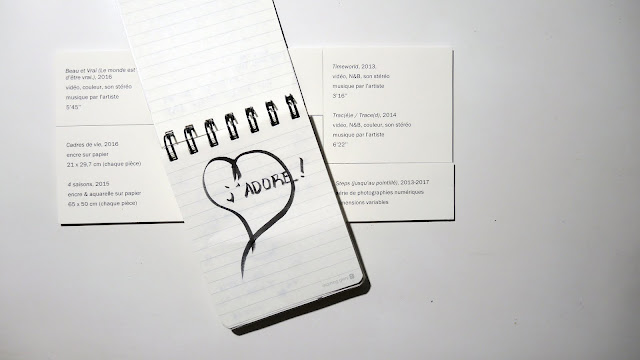 Beau et Vrai (Le monde est
d'être vrai.), 2016
vidéo, couleur, son stéréo
musique par l'artiste
5'45''
Cadres de vie, 2016
encre sur papier
21 x 29,7 cm (chaque pièce)
4 saisons, 2015
encre & aquarelle sur papier
65 x 50 cm (chaque pièce)
J'ADORE!
Timeworld, 2013
vidéo, N&B, son stéréo
musique par l'artiste
3'16''
2014
vidéo, N&B, couleur, son stéréo
musique par l'artiste
6'22''
Steps (jusqu'au pointillé), 2013-2017
série de photographies numériques
dimensions variables